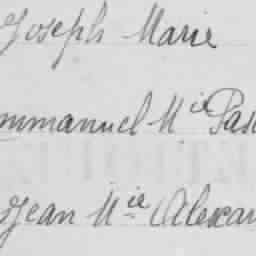 Joseph Marie
mmanuel Mie Pas
Jean Mie Alexan